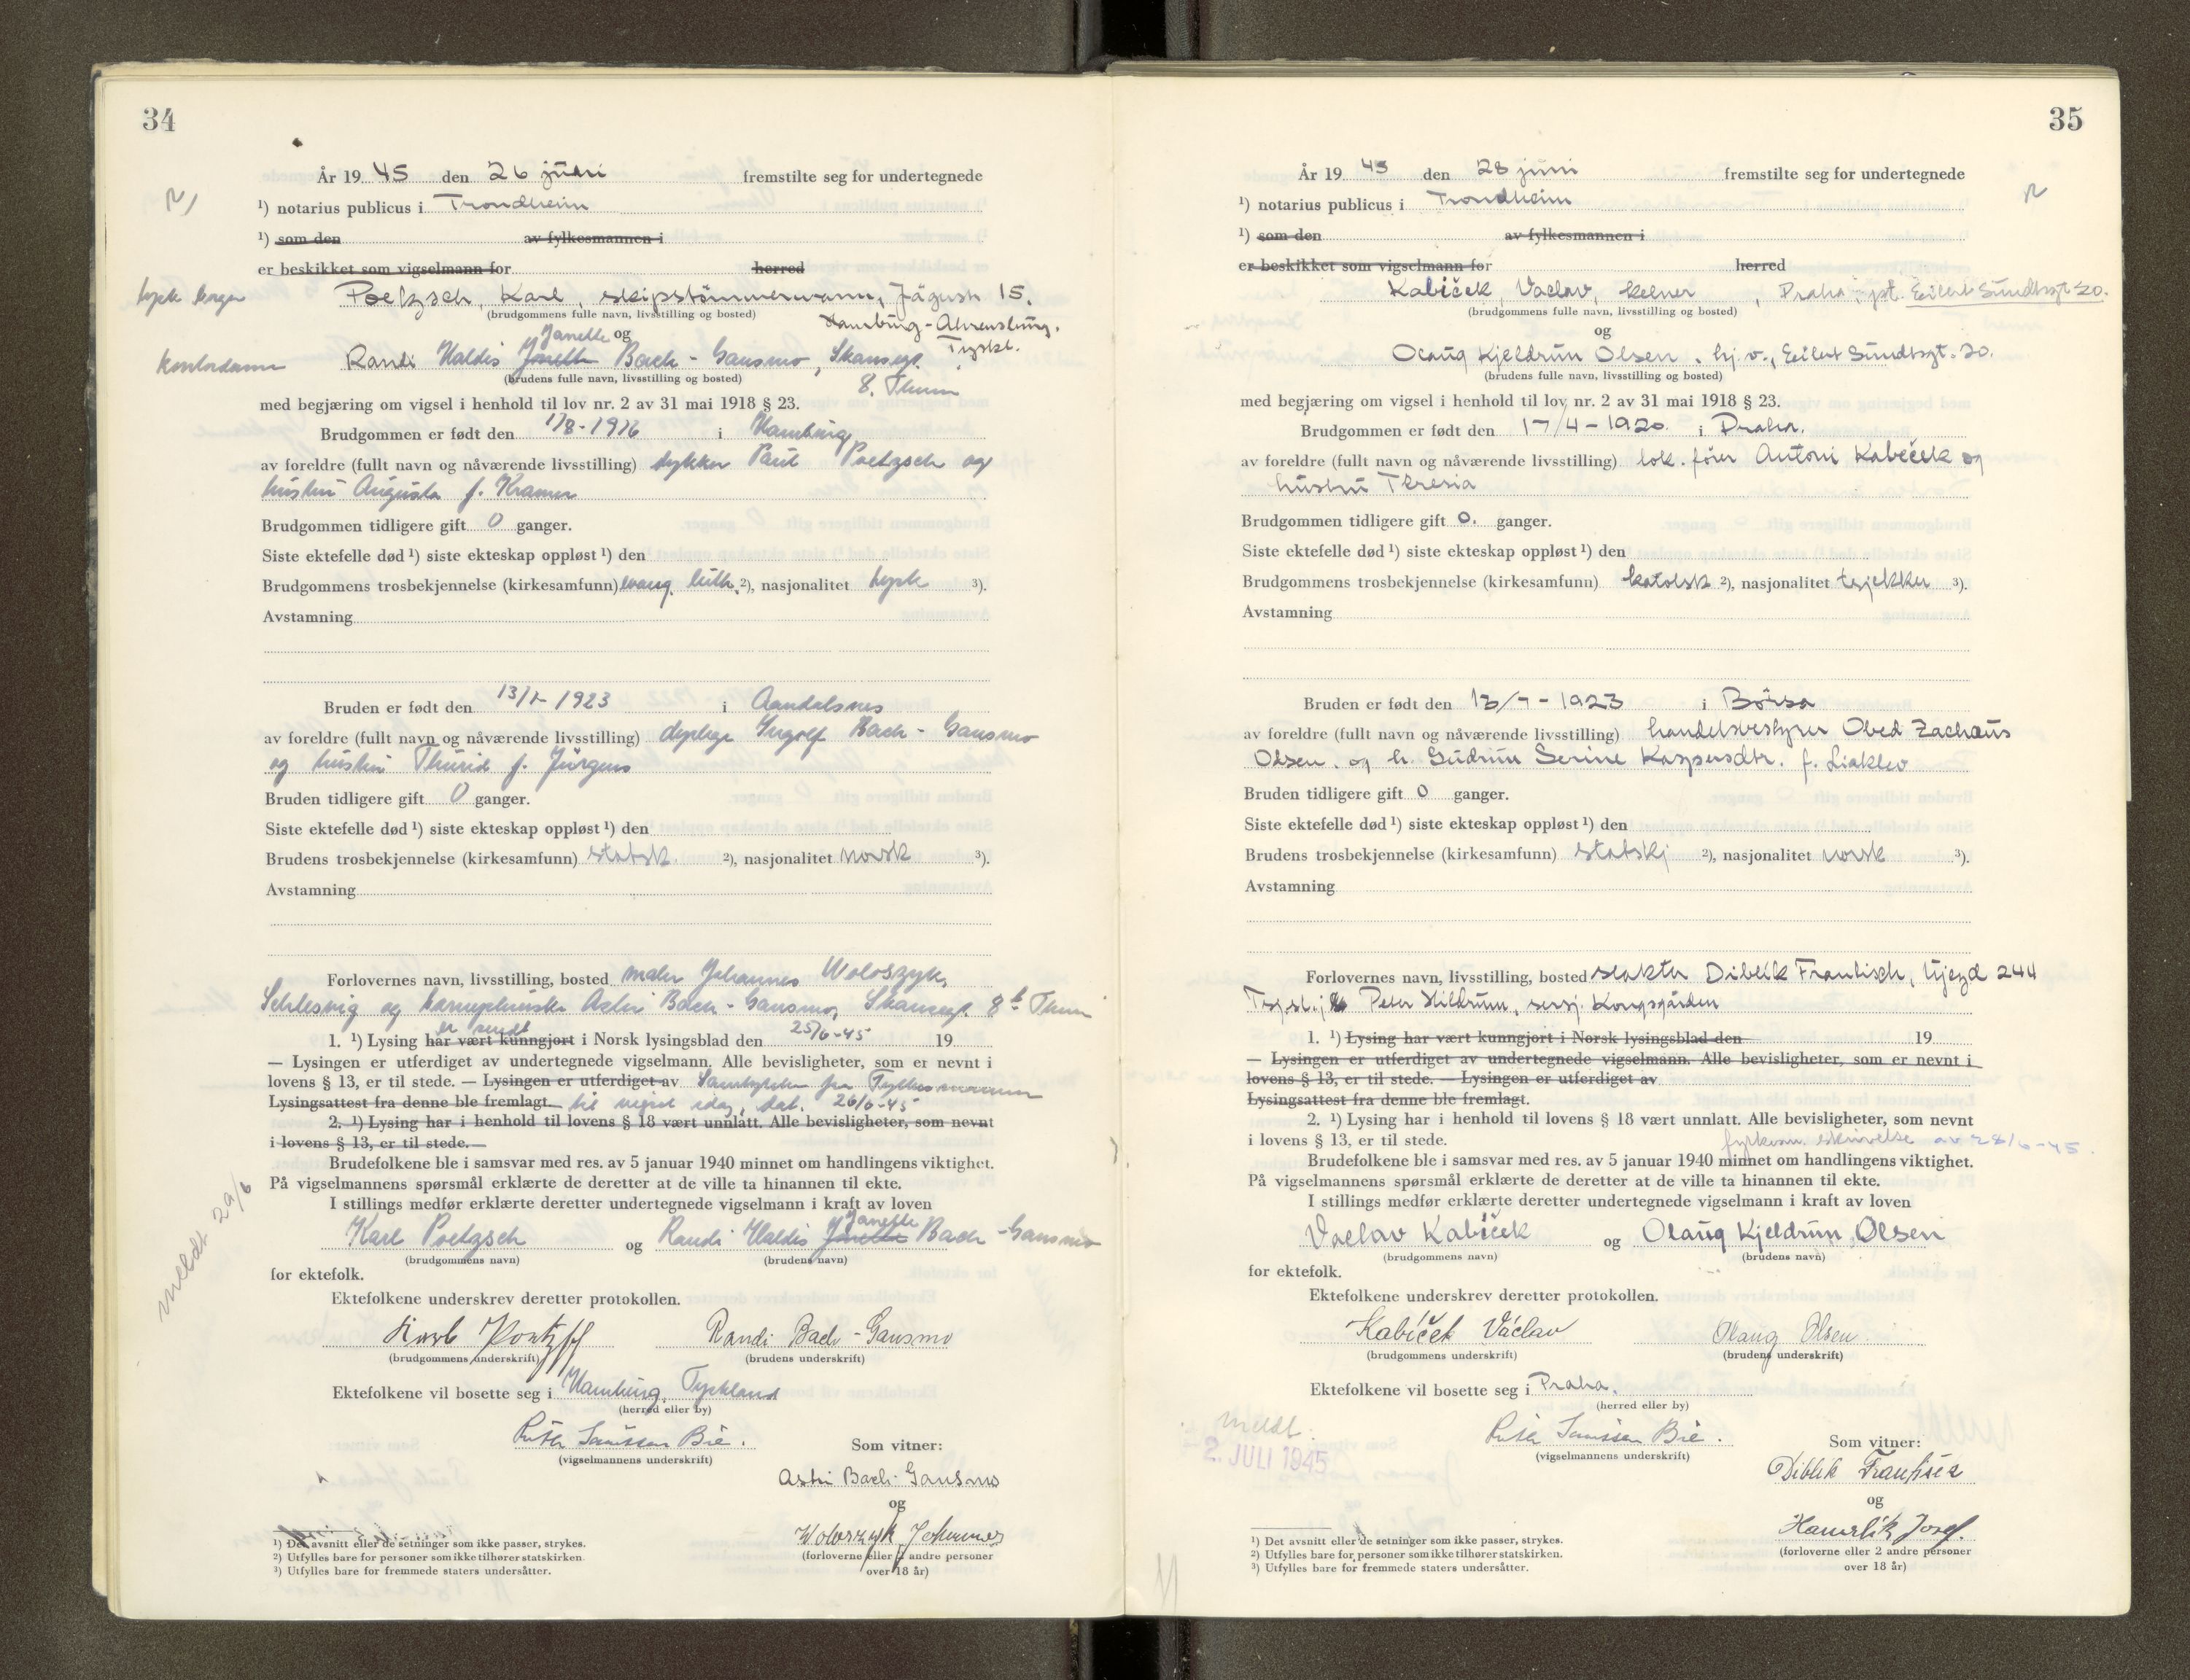 34
År 19 45 den 26 juni fremstilte seg for undertegnede
¹) notarius publicus i Trondheim
¹) som den av fylkesmannen i
er beskikket som vigselmann for herred
tysk borger
Poetzsch, Karl, skipstömmermann, Jägerstr 15.
(brudgommens fulle navn, livsstilling og bosted)
Hamburg-Ahrensburg.
Tyskl.
og
Janette
Randi Valdis Janette Bach-Gansmo, Skansegt.
(brudens fulle navn, livsstilling og bosted)
8. Thrm
med begjæring om vigsel i henhold til lov nr. 2 av 31 mai 1918 § 23.
Brudgommen er født den 1/8-1916 i Hamburg
av foreldre (fullt navn og nåværende livsstilling) dykker Paul Poetzsch og
hustru Augusta f. Kramer
Brudgommen tidligere gift 0 ganger.
Siste ektefelle død ¹) siste ekteskap oppløst ¹) den
Brudgommens trosbekjennelse (kirkesamfunn) evang. luth. ²), nasjonalitet tysk ³).
Avstamning
Bruden er født den 1923 i Aandalsnes
av foreldre (fullt navn og nåværende livsstilling) Ingolf Bach-Gansmo
og hustru Thurid f. Jürgens
Bruden tidligere gift 0 ganger.
Siste ektefelle død ¹) siste ekteskap oppløst ¹) den
Brudens trosbekjennelse (kirkesamfunn) statsk. ²), nasjonalitet norsk ³).
Avstamning
Forlovernes navn, livsstilling, bosted maler Johannes Woloszyk,
Schlesvig og Astri Bach-Gansmo, Skansegt. 8b Thrm
er sendt
1. ¹) Lysing har vært kunngjort i Norsk lysingsblad den 25/6-45 19
— Lysingen er utferdiget av undertegnede vigselmann. Alle bevisligheter, som er nevnt i
lovens § 13, er til stede. — Lysingen er utferdiget av Samtykke fra Fylkesmannen
Lysingsattest fra denne ble fremlagt. til vigsel idag, dat. 26/6-45
2. ¹) Lysing har i henhold til lovens § 18 vært unnlatt. Alle bevisligheter, som nevnt
i lovens § 13, er til stede.—
Brudefolkene ble i samsvar med res. av 5 januar 1940 minnet om handlingens viktighet.
På vigselmannens spørsmål erklærte de deretter at de ville ta hinannen til ekte.
I stillings medfør erklærte deretter undertegnede vigselmann i kraft av loven
Janette
Karl Poetzsch og Randi Valdis Janette Bach-Gansmo
(brudgommens navn) (brudens navn)
for ektefolk.
meldt 29/6
Ektefolkene underskrev deretter protokollen.
Karl Poetzsch Randi Bach-Gansmo
(brudgommens underskrift) (brudens underskrift)
Ektefolkene vil bosette seg i Hamburg, Tyskland
(herred eller by)
(vigselmannens underskrift)
Som vitner:
Astri Bach-Gansmo
og
Woloszyk Johannes
(forloverne eller 2 andre personer
over 18 år)
¹) Det avsnitt eller de setninger som ikke passer, strykes.
²) Utfylles bare for personer som ikke tilhører statskirken.
³) Utfylles bare for fremmede staters undersåtter.
35
År 19 45 den 28 juni fremstilte seg for undertegnede
¹) notarius publicus i Trondheim
¹) som den av fylkesmannen i
er beskikket som vigselmann for herred
Kabiček, Vaclav, kelner, Praha, pt. Eilert Sundtsgt 20.
(brudgommens fulle navn, livsstilling og bosted)
og
Olaug Kjeldrun Olsen, hj.v., Eilert Sundtsgt. 20.
(brudens fulle navn, livsstilling og bosted)
med begjæring om vigsel i henhold til lov nr. 2 av 31 mai 1918 § 23.
Brudgommen er født den 17/4-1920. i Praha.
av foreldre (fullt navn og nåværende livsstilling) lok. fører Antoni Kabiček og
hustru Theresia
Brudgommen tidligere gift 0. ganger.
Siste ektefelle død ¹) siste ekteskap oppløst ¹) den
Brudgommens trosbekjennelse (kirkesamfunn) katolsk ²), nasjonalitet tsjekker ³).
Avstamning
Bruden er født den 1923 i Börsa
av foreldre (fullt navn og nåværende livsstilling) handelsbestyrer Obed Zachæus
Olsen. og h. Gudrun Serine Kaspersdtr. f. Liaklev
Bruden tidligere gift 0 ganger.
Siste ektefelle død ¹) siste ekteskap oppløst ¹) den
Brudens trosbekjennelse (kirkesamfunn) statskj ²), nasjonalitet norsk ³).
Avstamning
Forlovernes navn, livsstilling, bosted slakter Diblik Frantisch, Ujezd 244
Peter Hildrum, sersj. Kongsgården
1. ¹) Lysing har vært kunngjort i Norsk lysingsblad den 19
— Lysingen er utferdiget av undertegnede vigselmann. Alle bevisligheter, som er nevnt i
lovens § 13, er til stede. — Lysingen er utferdiget av
Lysingsattest fra denne ble fremlagt.
2. ¹) Lysing har i henhold til lovens § 18 vært unnlatt. Alle bevisligheter, som nevnt
i lovens § 13, er til stede. fylkesm. skrivelse av 28/6-45.
Brudefolkene ble i samsvar med res. av 5 januar 1940 minnet om handlingens viktighet.
På vigselmannens spørsmål erklærte de deretter at de ville ta hinannen til ekte.
I stillings medfør erklærte deretter undertegnede vigselmann i kraft av loven
Vaclav Kabiček og Olaug Kjeldrun Olsen
(brudgommens navn) (brudens navn)
for ektefolk.
Ektefolkene underskrev deretter protokollen.
Kabíček Václav Olaug Olsen
(brudgommens underskrift) (brudens underskrift)
Ektefolkene vil bosette seg i Praha.
(herred eller by)
meldt.
2. JULI 1945
(vigselmannens underskrift)
Som vitner:
Diblik
og
Josef.
(forloverne eller 2 andre personer
over 18 år)
¹) Det avsnitt eller de setninger som ikke passer, strykes.
²) Utfylles bare for personer som ikke tilhører statskirken.
³) Utfylles bare for fremmede staters undersåtter.